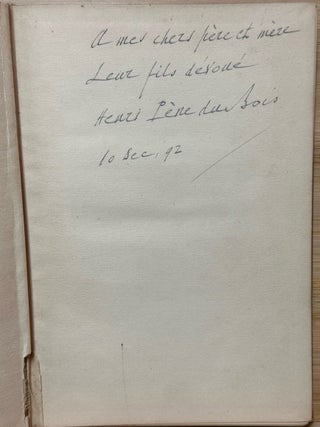 A mes chers père et mère
Leur fils dévoué
Henri Pène du Bois
10 Dec. 92